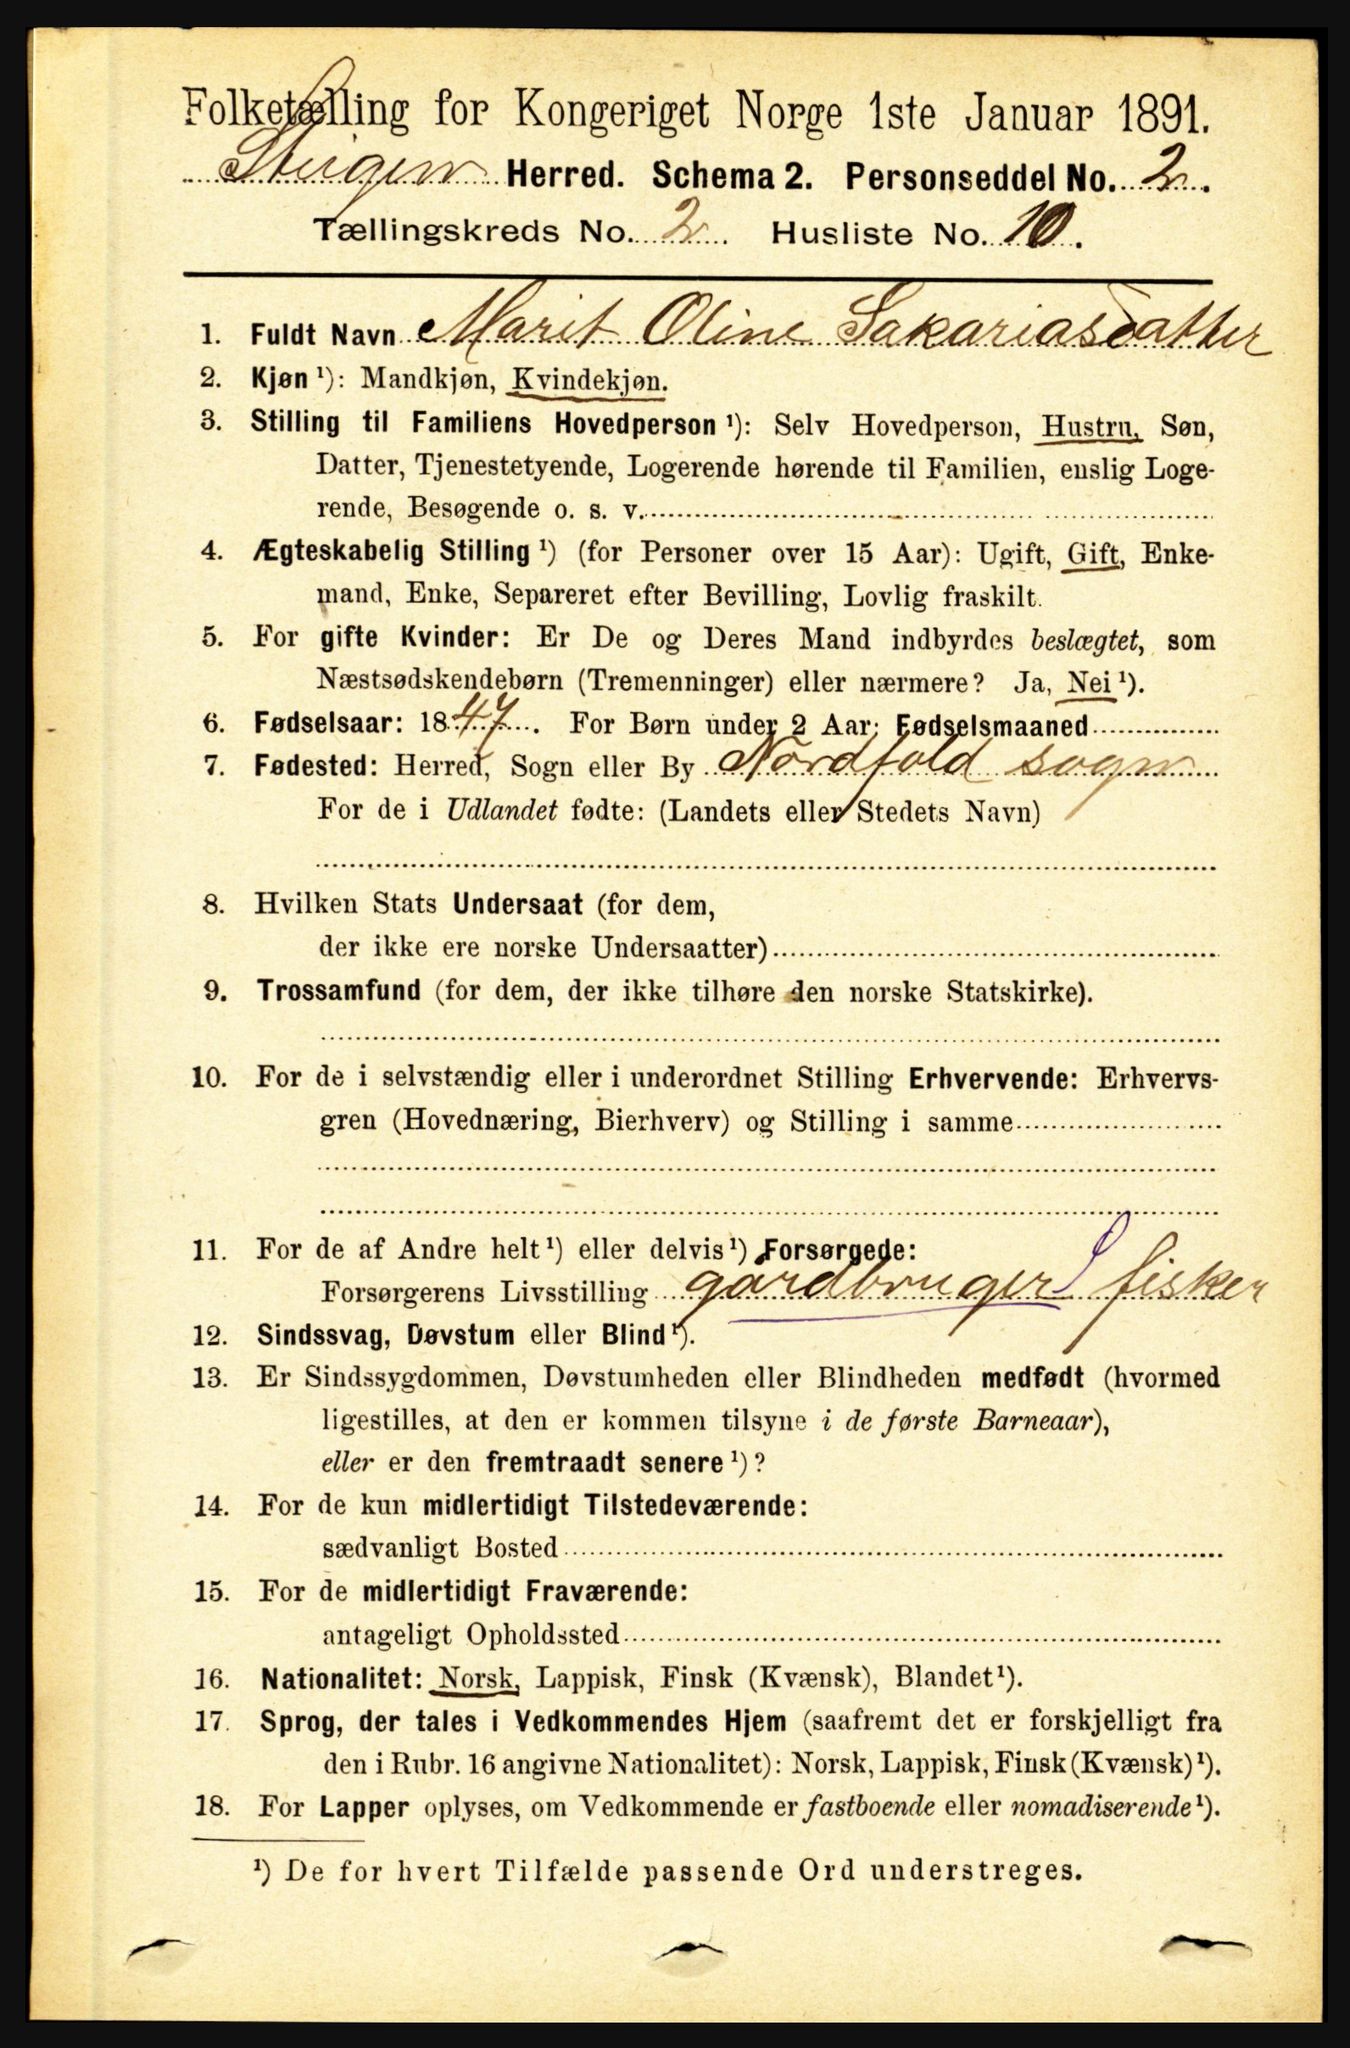 Folketælling for Kongeriget Norge 1ste Januar 1891.
Steigen Herred. Schema 2. Personseddel No. 2.
Tællingskreds No. 2. Husliste No. 10.
1. Fuldt Navn Marit Oline Sakariasdatter
2. Kjøn ¹): Mandkjøn, Kvindekjøn.
3. Stilling til Familiens Hovedperson ¹): Selv Hovedperson, Hustru, Søn,
Datter, Tjenestetyende, Logerende hørende til Familien, enslig Loge-
rende, Besøgende o. s. v.
4. Ægteskabelig Stilling ¹) (for Personer over 15 Aar): Ugift, Gift, Enke-
mand, Enke, Separeret efter Bevilling, Lovlig fraskilt.
5. For gifte Kvinder: Er De og Deres Mand indbyrdes beslægtet, som
Næstsødskendebørn (Tremenninger) eller nærmere? Ja, Nei ¹).
6. Fødselsaar: 1847. For Børn under 2 Aar: Fødselsmaaned
7. Fødested: Herred, Sogn eller By Nordfold sogn
For de i Udlandet fødte: (Landets eller Stedets Navn)
8. Hvilken Stats Undersaat (for dem,
der ikke ere norske Undersaatter)
9. Trossamfund (for dem, der ikke tilhøre den norske Statskirke).
10. For de i selvstændig eller i underordnet Stilling Erhvervende: Erhvervs-
gren (Hovednæring, Bierhverv) og Stilling i samme
11. For de af Andre helt ¹) eller delvis ¹) Forsørgede:
Forsørgerens Livsstilling gårdbruger fisker
12. Sindssvag, Døvstum eller Blind ¹).
13. Er Sindssygdommen, Døvstumheden eller Blindheden medfødt (hvormed
ligestilles, at den er kommen tilsyne i de første Barneaar),
eller er den fremtraadt senere ¹)?
14. For de kun midlertidigt Tilstedeværende:
sædvanligt Bosted
15. For de midlertidigt Fraværende:
antageligt Opholdssted
16. Nationalitet: Norsk, Lappisk, Finsk (Kvænsk), Blandet ¹).
17. Sprog, der tales i Vedkommendes Hjem (saafremt det er forskjelligt fra
den i Rubr. 16 angivne Nationalitet): Norsk, Lappisk, Finsk (Kvænsk) ¹).
18. For Lapper oplyses, om Vedkommende er fastboende eller nomadiserende ¹).
¹) De for hvert Tilfælde passende Ord understreges.